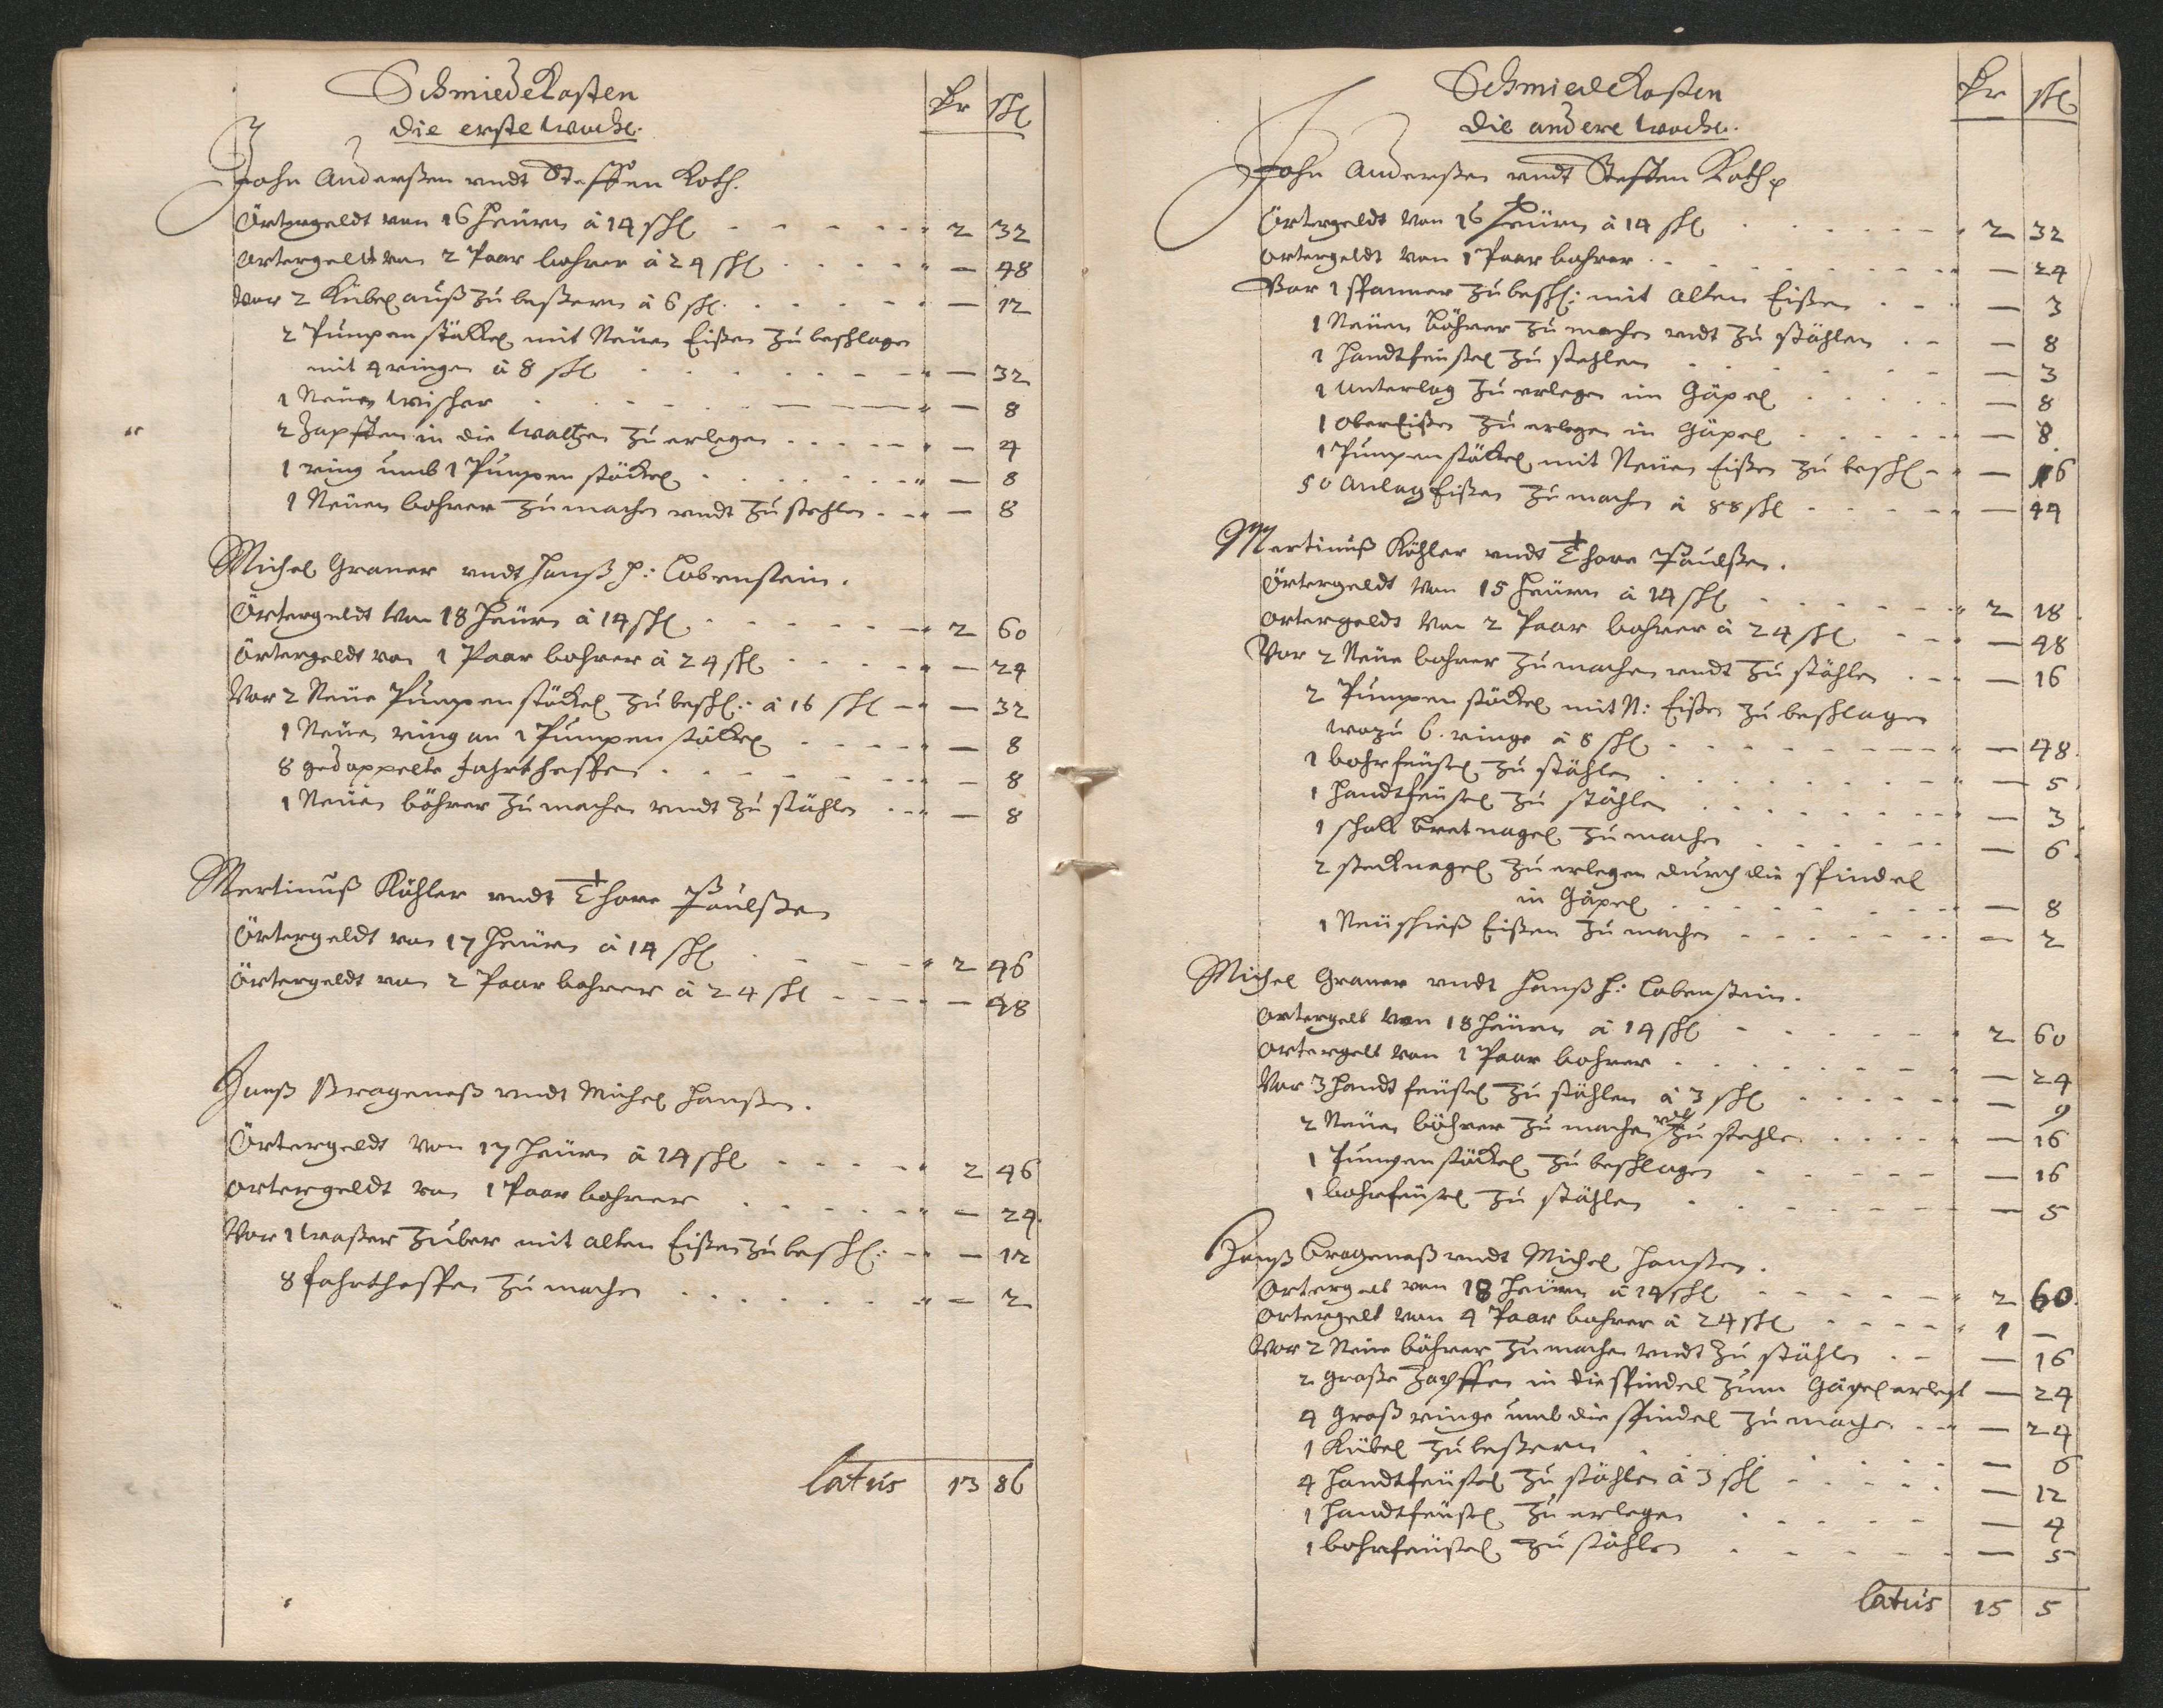 SchmiedeKosten
die erste Woche.
Rr ßl
John Anderßen undt Steffen Koth.
Örtergeldt von 16 Heüern à 14 ßl - - - - - 2 32
örtergeldt von 2 Paar bohrer à 24 ßl - - - - — 48
Vor 2 Kübel auß zu beßern à 6 ßl - - - - — 12
2 Pumpen stöckel mit Neüen Eißen zu beschlagen
mit 4 ringen à 8 ßl - - - - — 32
1 Neüen Wischer - - - - — 8
2 Zapffen in die Waltzen zu erlegen - - - - — 4
1 ring umb 1 Pumpen stöckel - - - - — 8
1 Neüen bohrer zu machen undt zu stehlen - - — 8
Michel Graner undt Hanß H: Lobenstein.
Örtergeldt von 18 Heüern à 14 ßl - - - - 2 60
Örtergeldt von 1 Paar bohrer à 24 ßl - - - - — 24
Vor 2 Neüe Pumpen stöckel zu beschl: à 16 ßl - - — 32
1 Neüen ring an 1 Pumpen stöckel - - - - — 8
8 gedoppelte fahrthaspen - - - - — 8
1 Neüen böhrer zu machen undt zu stählen - - — 8
Mertinuß Köhler undt Thore Paulßen
Örtergeldt von 17 Heüern à 14 ßl - - - - 2 46
Örtergeldt von 2 Paar bohrer à 24 ßl - - - - — 48
Hanß Brageneß undt Michel Hanßen.
Örtergeldt von 17 Heüern à 14 ßl - - - - 2 46
örtergeldt von 1 Paar bohrer - - - - — 24.
Vor 1 Waßer Zuber mit alten Eißen zu beschl: - - — 12
8 fahrthaspen zu machen - - - - — 2
latus 13 86
SchmiedeKosten
die andere Woche.
Rr ßl
John Anderßen undt Steffen Koth
Örtergeldt von 16 Heüern à 14 ßl - - - - 2 32
örtergeldt von 1 Paar bohrer - - - - — 24
Vor 1 spanner zu beschl: mit alten Eißen - - — 3
1 Neüen böhrer zu machen undt zu stählen - - — 8
1 Handtfeüstel zu stehlen - - - - — 3
1 Unterlag zu erlegen im Göpel - - - - — 8
1 ober Eißen zu erlegen in Göpel - - - - — 8
1 Pumpen stöckel mit Neüen Eißen zu beschl - - — 16
50 Anlag Eißen zu machen à 88 ßl - - - - — 44
Mertinuß Köhler undt Thore Paulßen.
Örtergeldt von 15 Heüern à 14 ßl - - - - 2 18
örtergeldt von 2 Paar bohrer à 24 ßl - - - — 48
Vor 2 Neüe bohrer zu machen undt zu stählen - - — 16
2 Pumpen stöckel mit N: Eißen zu beschlagen
wozu 6. ringe à 8 ßl - - - - — 48.
1 bohrfeüstel zu stählen - - - - — 5
1 Handtfeüstel zu stählen - - - - — 3
1 schall bret nagel zu machen - - - - — 6.
2 stecknagel zu erlegen durch die spindel
in Göpel - - - - — 8
1 Neü schieß Eißen zu machen - - - - — 2
Michel Graner undt Hanß H: Lobenstein.
örtergelt von 18 Heüern à 14 ßl - - - - 2 60
örtergelt von 1 Paar bohrer - - - - — 24
Vor 3 Handt feüstel zu stählen à 3 ßl - - - - — 9
2 Neüen böhrer zu machen undt zu stehlen - - - — 16
1 Pumpen stöckel zu beschlagen - - - - — 16
1 bohrfeüstel zu stählen - - - - — 5
Hanß Brageneß undt Michel Hanßen.
örtergelt von 18 Heüern à 14 ßl - - - - 2 60.
örtergelt von 4 Paar bohrer à 24 ßl - - - - 1 —
Vor 2 Neüe böhrer zu machen undt zu stählen - - — 16
2 große Zapffen in die spindel zum Göpel erlegt — 24
4 groß ringe umb die spindel zu machen - - — 24
1 Kübel zu beßern - - - - — 6
4 Handtfeüstel zu stählen à 3 ßl - - - - — 12
1 Handtfeüstel zu erlegen - - - - — 4
1 bohrfeüstel zu stählen - - - - — 5
latus 15 5